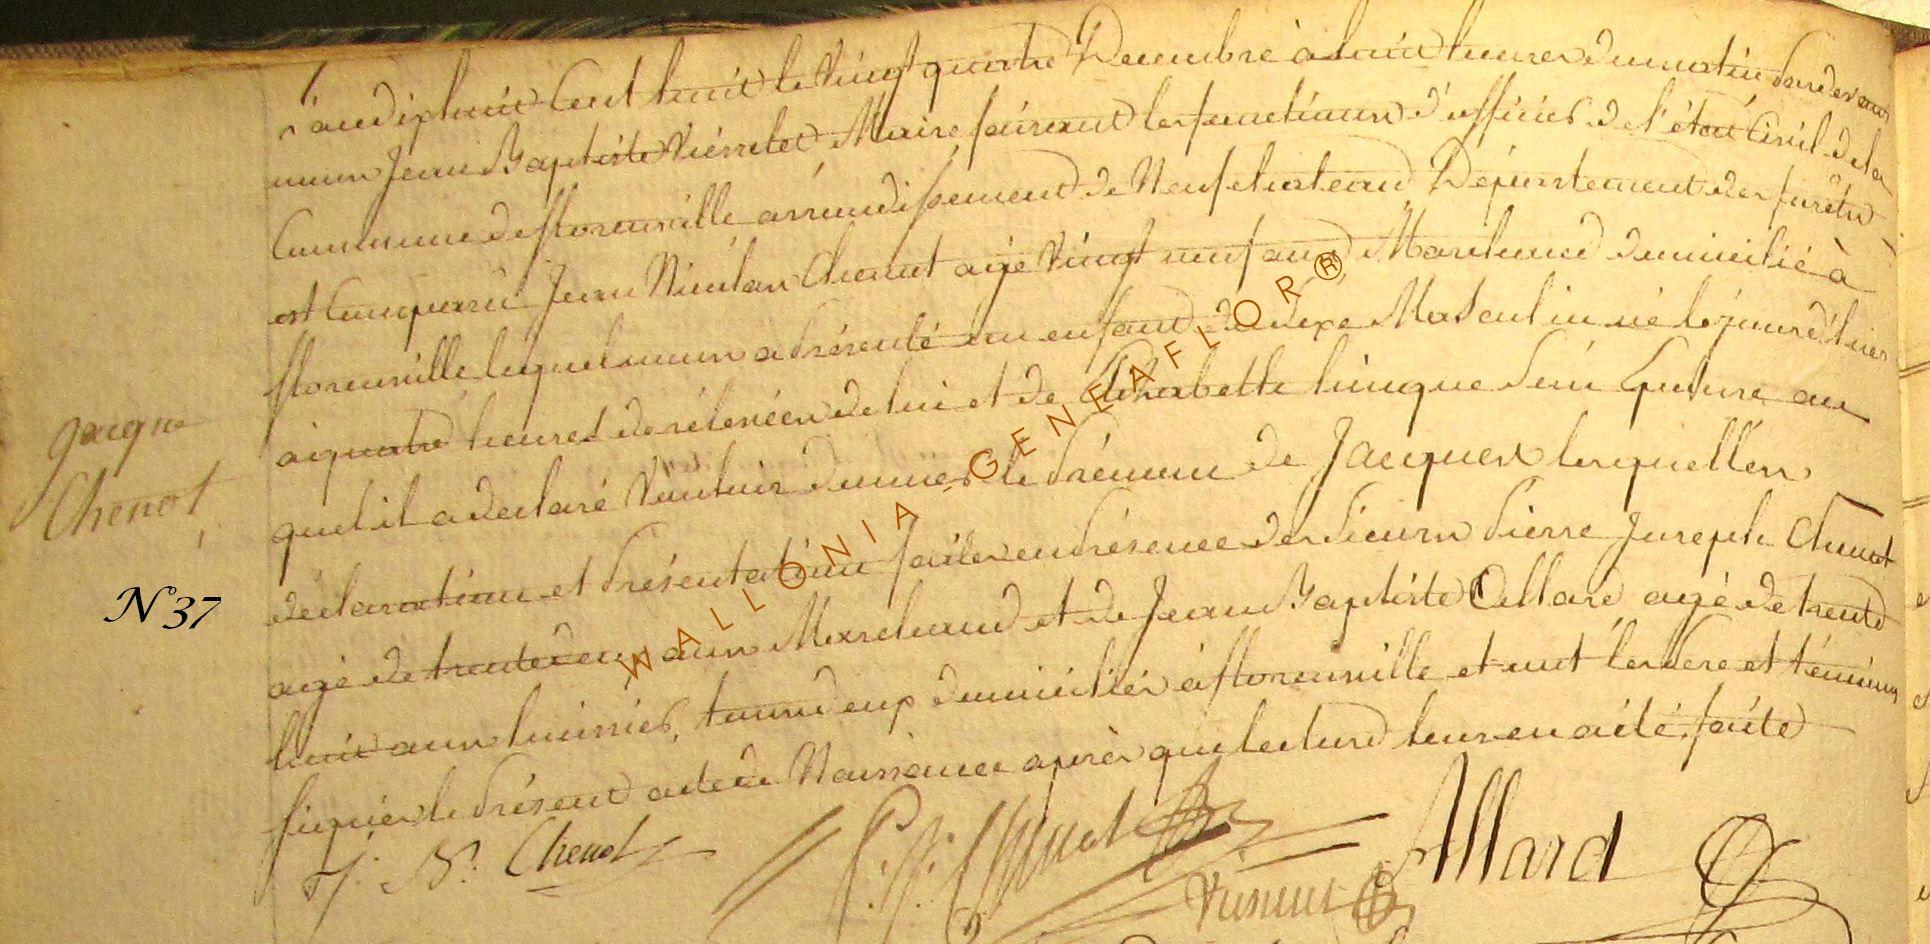 L'an dix huit Cent huit le vingt quatre Decembre à huit heures du matin pardevant
nous Jean Baptiste Maire faisant les fonctions d'officier de l'état Civil de la
Commune de florenville arrondissement de Neufchateau Département des forêts
est Comparu Jean Nicolas Chenot agé vingt neuf ans Marchand domicilié à
florenville lequel nous a présenté un enfant de sexe Masculin né le jour d'hier
à quatre heures de relevée de lui et de Elisabette son Epouse au
quel il a declaré vouloir donner le prénom de Jacques lesquelles
déclaration et présentation faites en présence des sieurs pierre Joseph Chenot
agé de trente deux ans Marchand et de Jean Baptiste Allard agé de trente
huit ans huissier, tous deux domiciliés à florenville et ont les père et témoins
signés le présent acte de Naissance après que lecture leur en a été faite
Jacque
Chenot
N 37
J. N. Chenot
P. J. Chenot
Allard
WALLONIA - GENEAFLOR ®